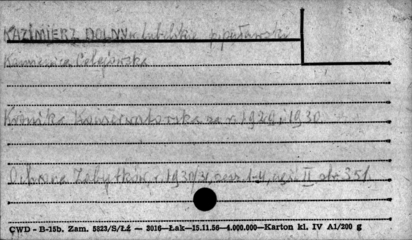 KAZIMIERZ DOLNY w. lubelskie p. puławski
Kamienica Celejowska
Kronika Konserwatorska za r. 1929 i 1930
Ochrona Zabytków r. 1930/31, zesz. 1-4, część II str. 351
CWD - B-15b. Zam. 5523/S/ŁŻ — 2016—Łak—15.11.56—4.000.000—Karton kl. IV A1/200 g